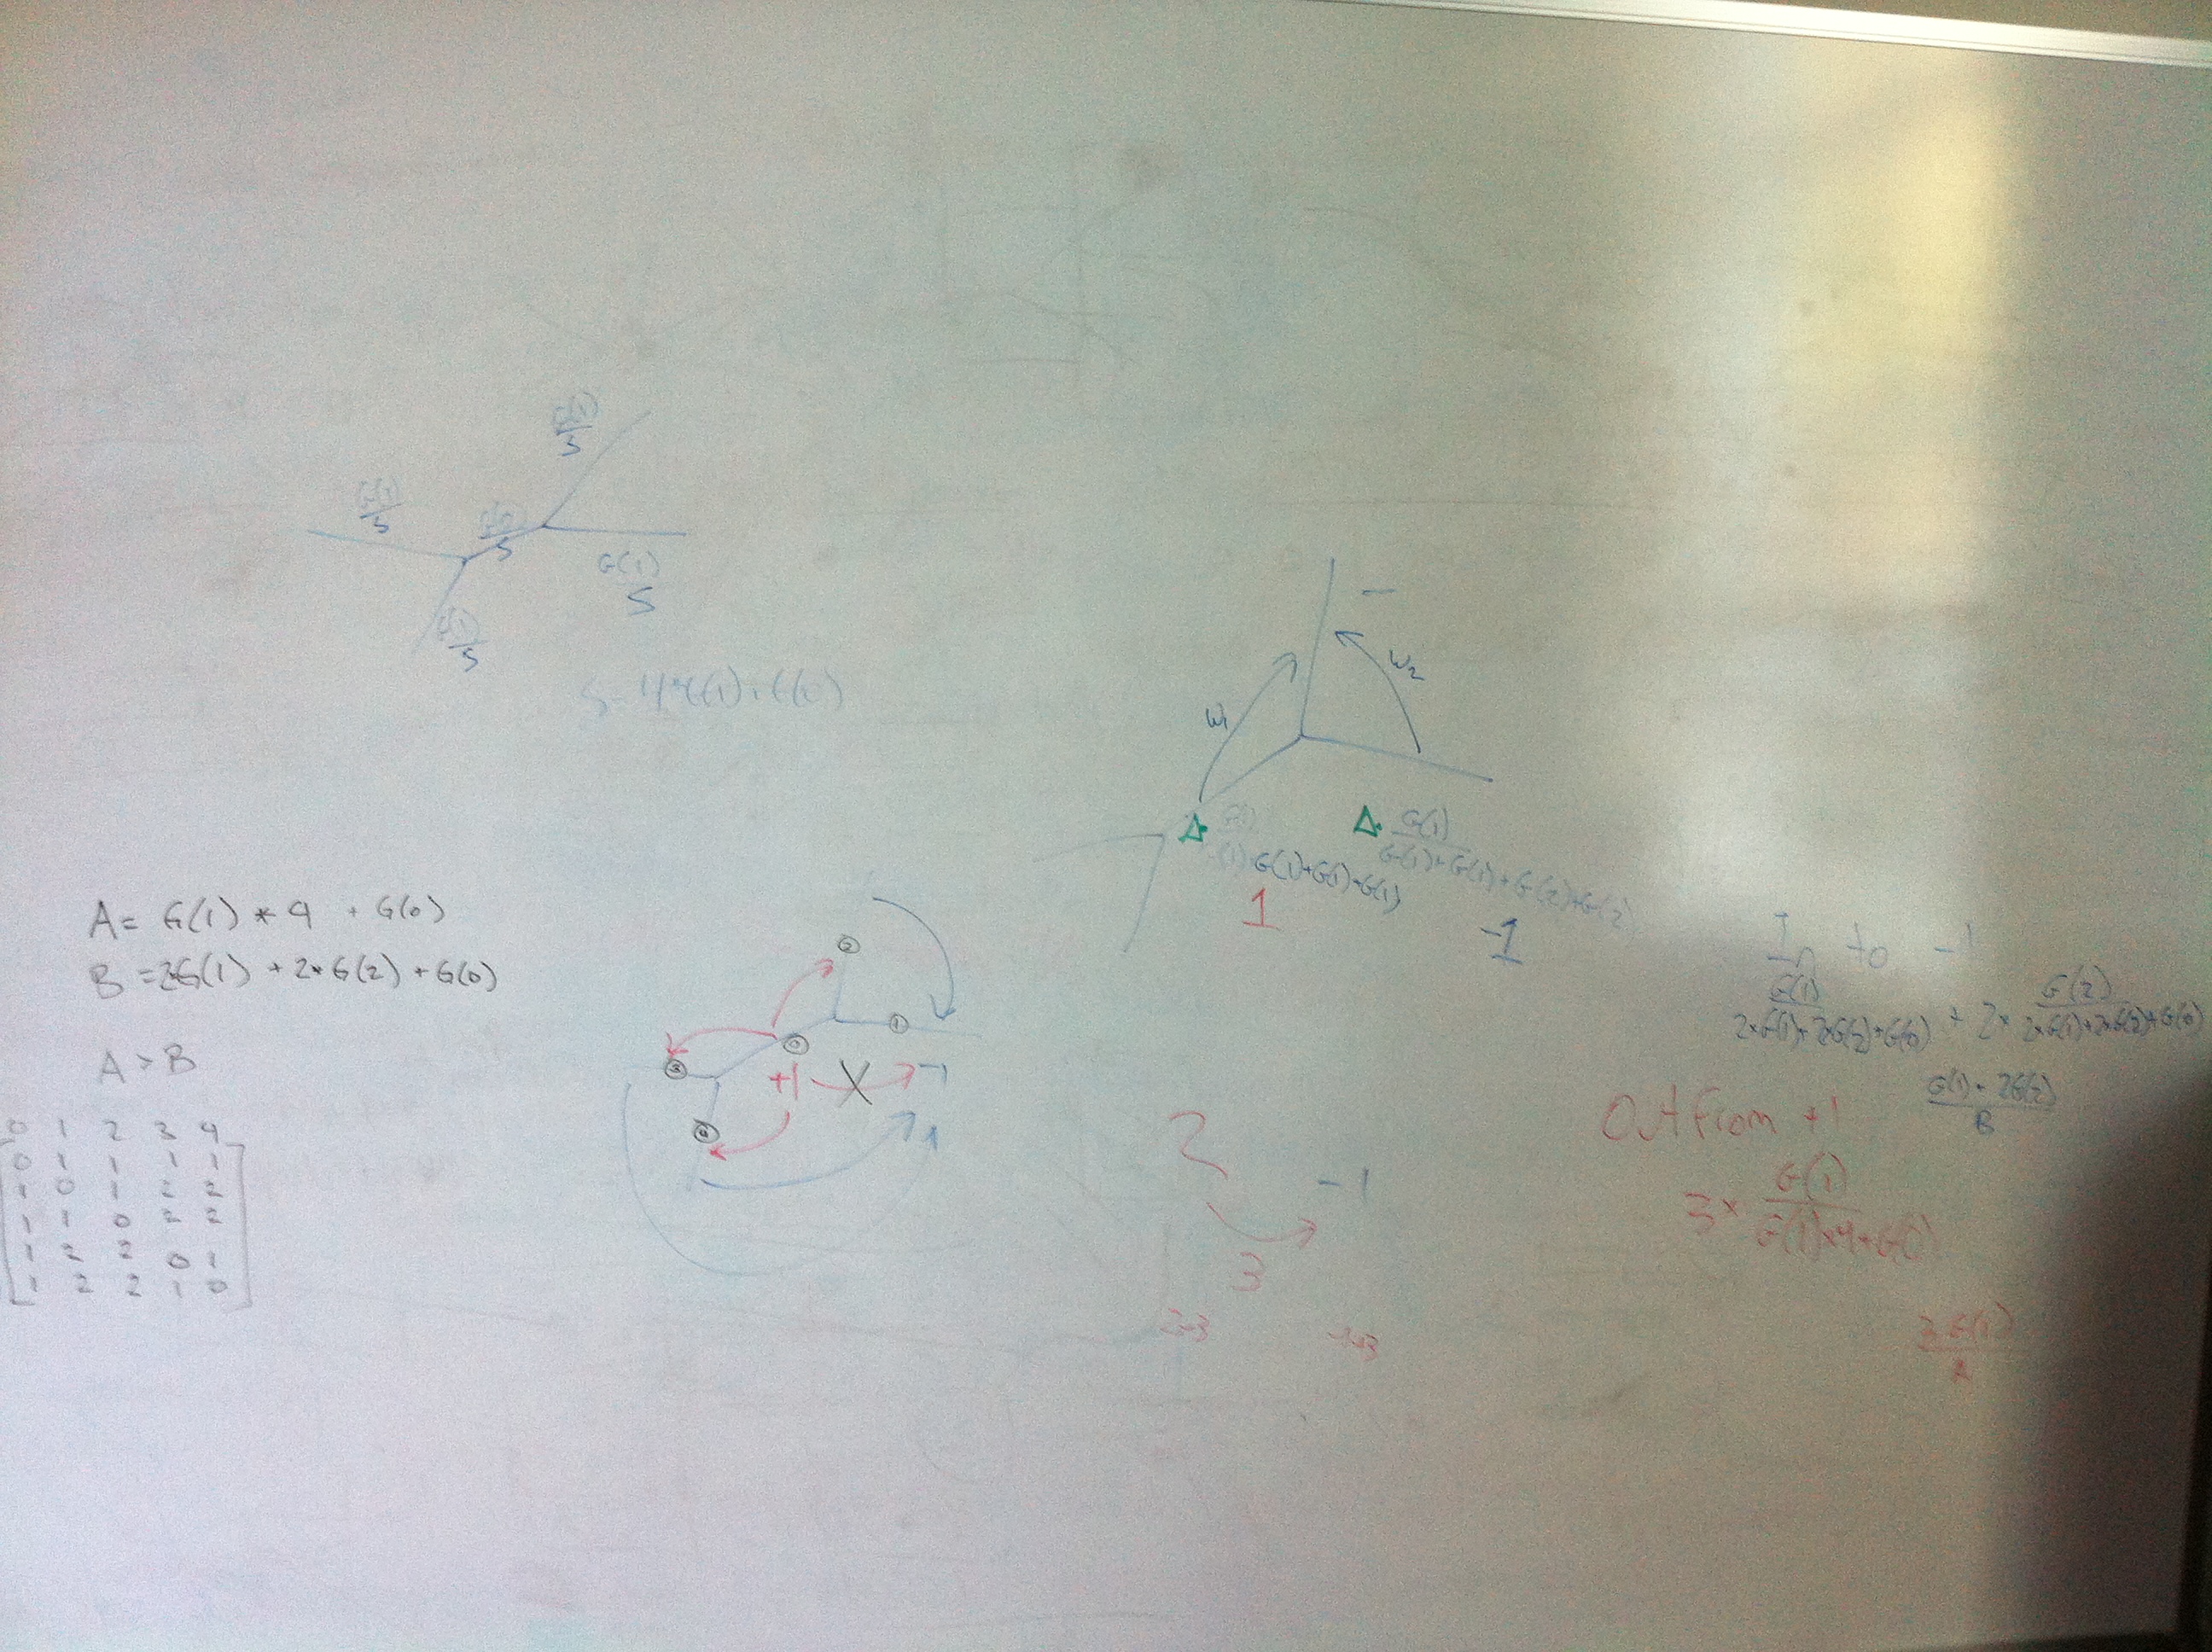 G(1)
S
G(1)
S
G(0)
S
G(1)
S
G(1)
S
S=4*G(1)+G(0)
-
W1
W2
Δ·
G(1)+G(1)+G(1)
1
Δ· G(1)
G(1)+G(1)+G(2)+G(2)
-1
A= G(1) * 4 + G(0)
B =2*G(1) + 2*G(2) + G(0)
A > B
0 1 2 3 4
0 1 1 1 1
1 0 1 2 2
1 1 0 2 2
1 2 2 0 1
1 2 2 1 0
2
1
0
3
4
+1
X
-1
2
-1
3
2-3
In to -1
G(1)
2*G(1)+2*G(2)+G(0)
+ 2*
G(2)
2*G(1)+2*G(2)+G(0)
G(1)+2G(2)
B
Out From +1
3* G(1)
G(1)*4+G(0)
3G(1)
A